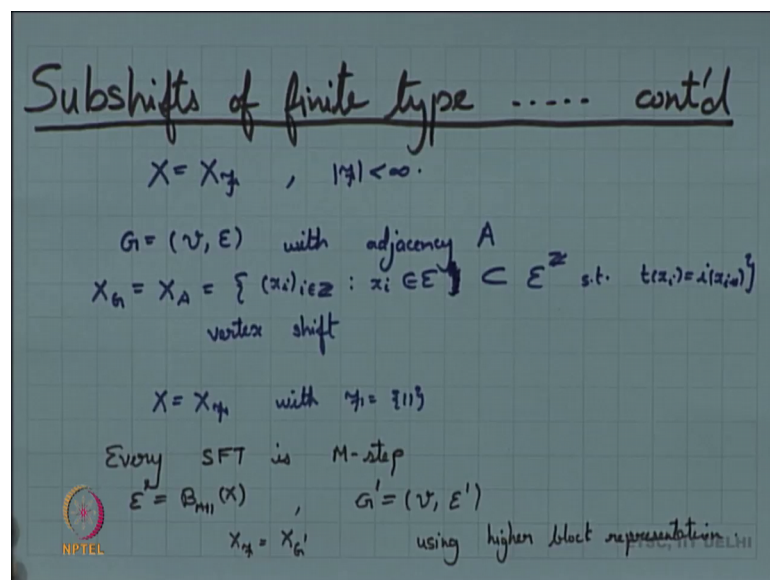 Subshifts of finite type ..... cont'd
X = X_𝓕 , |𝓕| < ∞.
G = (𝒱, ℰ) with adjacency A
X_G = X_A = { (x_i)_{i∈ℤ} : x_i ∈ ℰ } ⊂ ℰ^ℤ s.t. t(x_i) = i(x_{i+1}) }
vertex shift
X = X_𝓕 with 𝓕 = {11}
Every SFT is M-step
ℰ' = B_{M+1}(X) , G' = (𝒱, ℰ')
X_𝓕 = X_{G'} using higher block representation.
NPTEL
ETSC, IIT DELHI